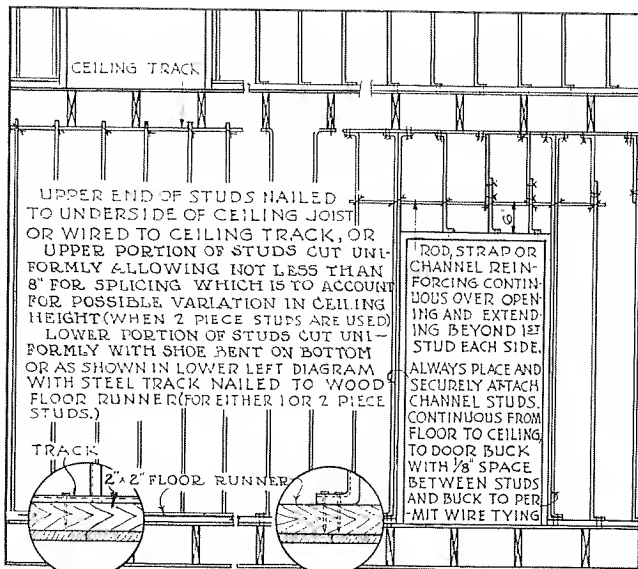 CEILING TRACK
UPPER END OF STUDS NAILED
TO UNDERSIDE OF CEILING JOIST
OR WIRED TO CEILING TRACK, OR
UPPER PORTION OF STUDS CUT UNI-
FORMLY ALLOWING NOT LESS THAN
8" FOR SPLICING WHICH IS TO ACCOUNT
FOR POSSIBLE VARIATION IN CEILING
HEIGHT (WHEN 2 PIECE STUDS ARE USED)
LOWER PORTION OF STUDS CUT UNI-
FORMLY WITH SHOE BENT ON BOTTOM
OR AS SHOWN IN LOWER LEFT DIAGRAM
WITH STEEL TRACK NAILED TO WOOD
FLOOR RUNNER (FOR EITHER 1 OR 2 PIECE
STUDS.)
6"
ROD, STRAP OR
CHANNEL REIN-
FORCING CONTIN-
UOUS OVER OPEN-
ING AND EXTEND-
ING BEYOND 1ST
STUD EACH SIDE.
ALWAYS PLACE AND
SECURELY ATTACH
CHANNEL STUDS,
CONTINUOUS FROM
FLOOR TO CEILING,
TO DOOR BUCK
WITH 1/8" SPACE
BETWEEN STUDS
AND BUCK TO PER-
-MIT WIRE TYING
TRACK
2"x2" FLOOR RUNNER